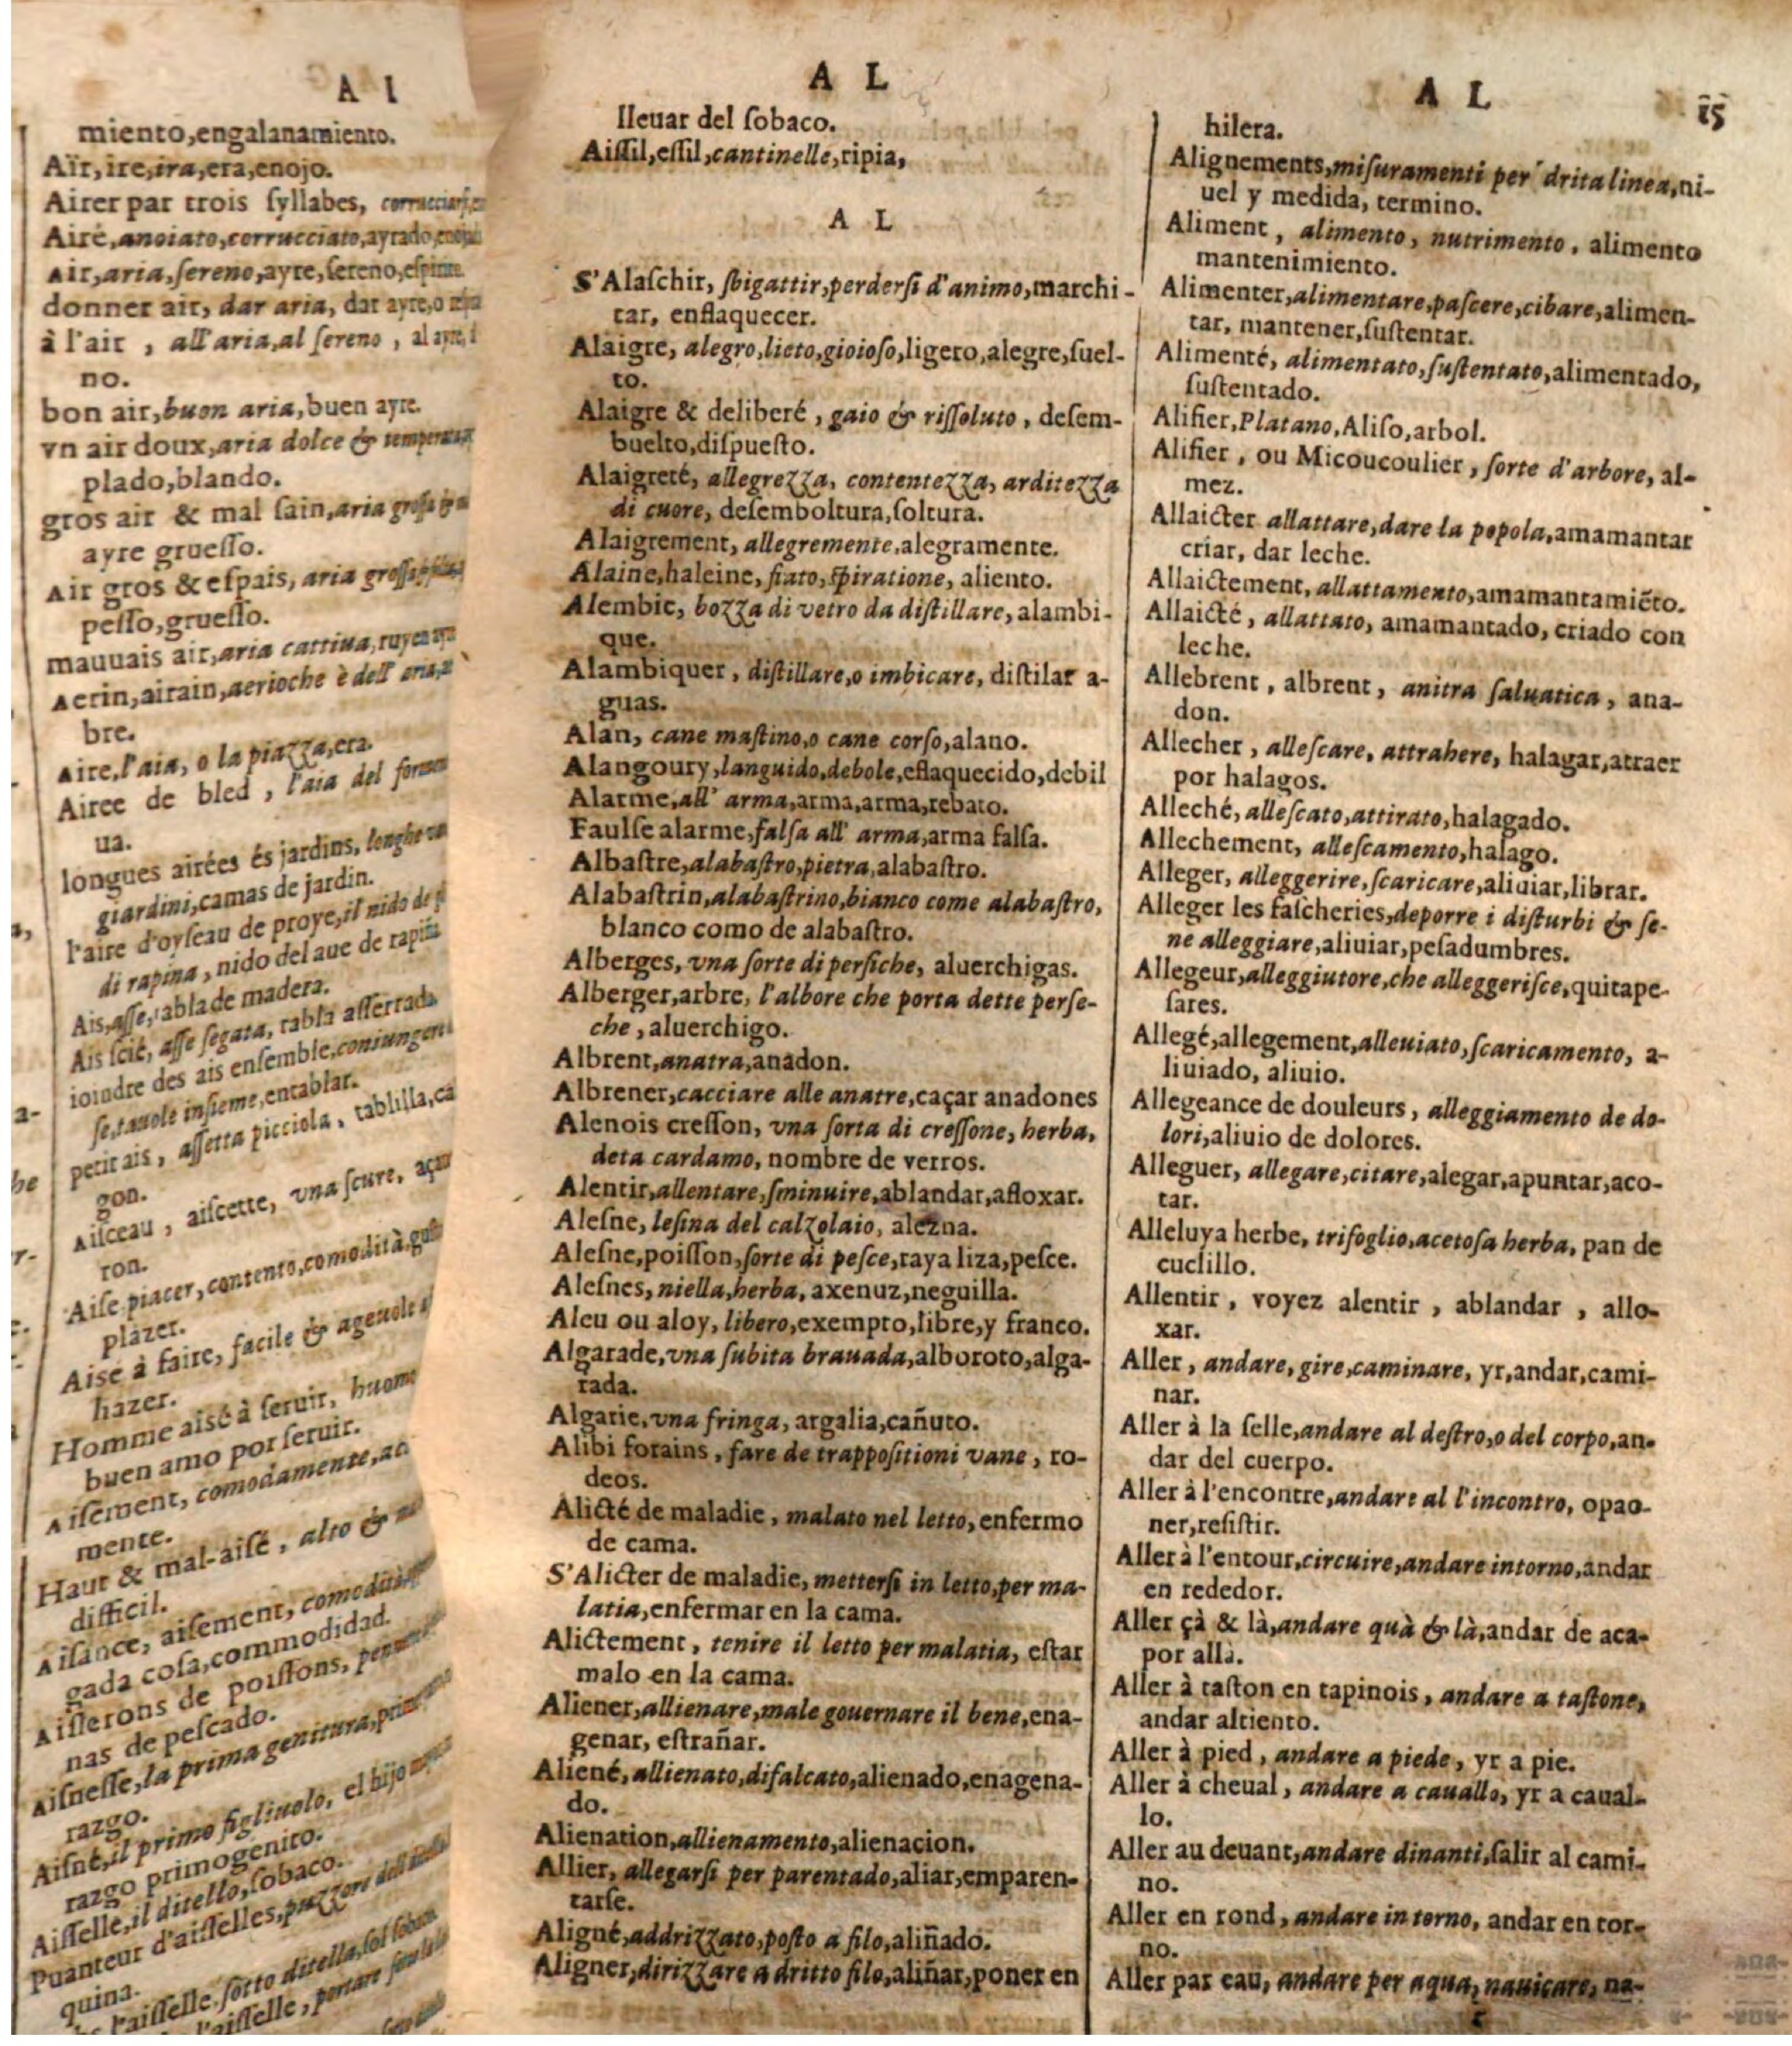 A I
miento,engalanamiento.
Aïr,ire,ira,era,enojo.
Airer par trois ſyllabes,
Airé,anoiato,corrucciato,ayrado,
Air,aria,ſereno,ayre,ſereno,
donner air, dar aria, dar ayre,o
à l'air , all'aria,al ſereno , al ayre,
no.
bon air,buon aria,buen ayre.
vn air doux,aria dolce &
plado,blando.
gros air & mal ſain,aria
ayre grueſſo.
Air gros & eſpais, aria
peſſo,grueſſo.
mauuais air,aria cattiua,
Aerin,airain,aerioche è dell'
bre.
Aire,l'aia, o la piazza,era.
Airee de bled , l'aia del
ua.
longues airées és jardins,
giardini,camas de jardin.
l'aire d'oyſeau de proye,il nido de
di rapina , nido del aue de
Ais,aſſe,tabla de madera.
Ais ſcié, aſſe ſegata, tabla aſſerrada
ioindre des ais enſemble,
ſe,tauole inſieme,entablar.
petit ais , aſſetta picciola , tablilla,ca
gon.
Aiſceau , aiſcette, vna ſcure,
ron.
Aiſe piacer,contento,comodità,
plazer.
Aise à faire, facile & ageuole
hazer.
Homme aisé à ſeruir,
buen amo por ſeruir.
Aiſement, comodamente,
mente.
Haut & mal-aiſé , alto &
difficil.
Aiſance, aiſement,
gada coſa,commodidad.
Aiſſerons de poiſſons,
nas de peſcado.
Aiſneſſe,la prima genitura,
razgo.
Aiſné,il primo figliuolo, el hijo
razgo primogenito.
Aiſſelle,il ditello,ſobaco.
Puanteur d'aiſſelles,
quina.
l'aiſſelle ſotto ditella,
l'aiſſelle, portare
A L
lleuar del ſobaco.
Aiſſil,eſſil,cantinelle,ripia,
A L
S'Alaſchir, ſbigattir,perderſi d'animo,marchi-
tar, enflaquecer.
Alaigre, alegro,lieto,gioioſo,ligero,alegre,ſuel-
to.
Alaigre & deliberé , gaio & riſſoluto , deſem-
buelto,diſpueſto.
Alaigreté, allegrezza, contentezza, arditezza
di cuore, deſemboltura,ſoltura.
Alaigrement, allegremente,alegramente.
Alaine,haleine, fiato, ſpiratione, aliento.
Alembic, bozza di vetro da diſtillare, alambi-
que.
Alambiquer , diſtillare,o imbicare, diſtilar a-
guas.
Alan, cane maſtino,o cane corſo,alano.
Alangoury,languido,debole,eflaquecido,debil
Alarme,all' arma,arma,arma,rebato.
Faulſe alarme,falſa all' arma,arma falſa.
Albaſtre,alabaſtro,pietra,alabaſtro.
Alabaſtrin,alabaſtrino,bianco come alabaſtro,
blanco como de alabaſtro.
Alberges, vna ſorte di perſiche, aluerchigas.
Alberger,arbre, l'albore che porta dette perſe-
che , aluerchigo.
Albrent,anatra,anadon.
Albrener,cacciare alle anatre,caçar anadones
Alenois creſſon, vna ſorta di creſſone, herba,
deta cardamo, nombre de verros.
Alentir,allentare,ſminuire,ablandar,afloxar.
Aleſne, leſina del calzolaio, alezna.
Aleſne,poiſſon,ſorte di peſce,raya liza,peſce.
Aleſnes, niella,herba, axenuz,neguilla.
Aleu ou aloy, libero,exempto,libre,y franco.
Algarade,vna ſubita brauada,alboroto,alga-
rada.
Algarie,vna fringa, argalia,cañuto.
Alibi forains , fare de trappoſitioni vane , ro-
deos.
Alicté de maladie , malato nel letto,enfermo
de cama.
S'Alicter de maladie, metterſi in letto,per ma-
latia,enfermar en la cama.
Alictement , tenire il letto per malatia, eſtar
malo en la cama.
Aliener,allienare,male gouernare il bene,ena-
genar, eſtrañar.
Aliené,allienato,difalcato,alienado,enagena-
do.
Alienation,allienamento,alienacion.
Allier, allegarſi per parentado,aliar,emparen-
tarſe.
Aligné,addrizzato,poſto a filo,aliñado.
Aligner,dirizzare a dritto filo,aliñar,poner en
A L
15
hilera.
Alignements,miſuramenti per drita linea,ni-
uel y medida, termino.
Aliment , alimento , nutrimento , alimento
mantenimiento.
Alimenter,alimentare,paſcere,cibare,alimen-
tar, mantener,ſuſtentar.
Alimenté, alimentato,ſuſtentato,alimentado,
ſuſtentado.
Aliſier,Platano,Aliſo,arbol.
Aliſier , ou Micoucoulier , ſorte d'arbore, al-
mez.
Allaicter allattare,dare la popola,amamantar
criar, dar leche.
Allaictement, allattamento,amamantamiẽto.
Allaicté , allattato, amamantado, criado con
leche.
Allebrent , albrent , anitra ſaluatica , ana-
don.
Allecher , alleſcare, attrahere, halagar,atraer
por halagos.
Alleché, alleſcato,attirato,halagado.
Allechement, alleſcamento,halago.
Alleger, alleggerire,ſcaricare,aliuiar,librar.
Alleger les faſcheries,deporre i diſturbi & ſe-
ne alleggiare,aliuiar,peſadumbres.
Allegeur,alleggiutore,che alleggeriſce,quitape-
ſares.
Allegé,allegement,alleuiato,ſcaricamento, a-
liuiado, aliuio.
Allegeance de douleurs , alleggiamento de do-
lori,aliuio de dolores.
Alleguer, allegare,citare,alegar,apuntar,aco-
tar.
Alleluya herbe, trifoglio,acetoſa herba, pan de
cuclillo.
Allentir , voyez alentir , ablandar , allo-
xar.
Aller , andare, gire,caminare, yr,andar,cami-
nar.
Aller à la ſelle,andare al deſtro,o del corpo,an-
dar del cuerpo.
Aller à l'encontre,andare al l'incontro, opao-
ner,reſiſtir.
Aller à l'entour,circuire,andare intorno,andar
en rededor.
Aller çà & là,andare quà & là,andar de aca-
por allà.
Aller à taſton en tapinois , andare a taſtone,
andar altiento.
Aller à pied , andare a piede , yr a pie.
Aller à cheual , andare a cauallo, yr a caual-
lo.
Aller au deuant,andare dinanti,ſalir al cami-
no.
Aller en rond , andare in torno, andar en tor-
no.
Aller par eau, andare per aqua, nauicare, na-